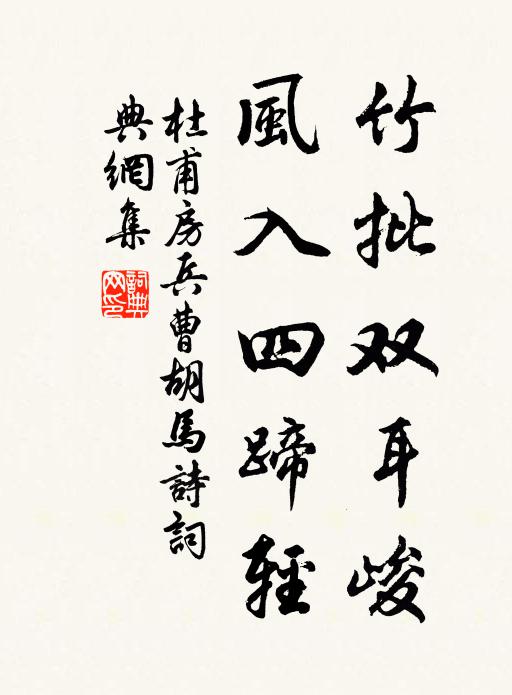 竹批双耳峻
風入四蹄輕
杜甫房兵曹胡馬詩詞
典網集
詞典
网印